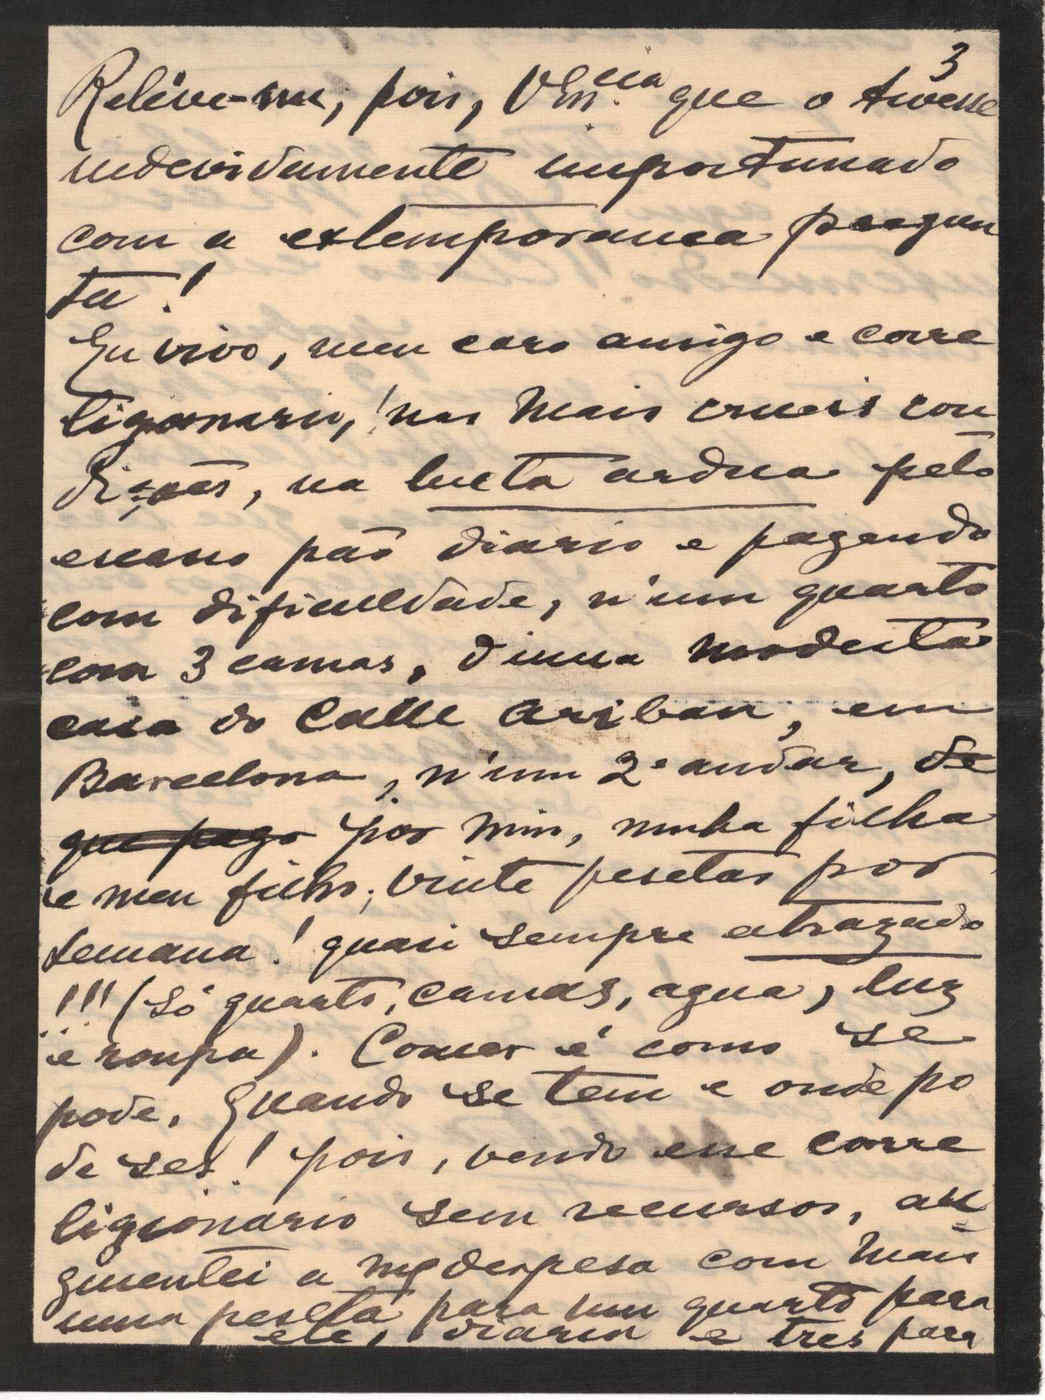 3
Relêve-me, pois, V Ex.cia que o tivesse
indevidamente importunado
com a extemporanea pregun
ta!
Eu vivo, meu caro amigo e corre
ligionario, nas mais crueis con
dições, na lucta ardua pelo
escasso pão diario e pagando
com dificuldade, n'um quarto
com 3 camas, d'uma modesta
casa do Calle Ariban, em
Barcelona, n'um 2º andar, de
que pago por mim, minha filha
e meu filho, vinte pesetas por
semana! quasi sempre atrazado
!!! (só quarto, camas, agua, luz
e roupa). Comer é como se
pode, Quando se tem e onde po
de ser! pois, vendo esse corre
ligionario sem recursos, au
gmentei a mª despesa com mais
uma peseta para um quarto para
ele, diaria e tres para